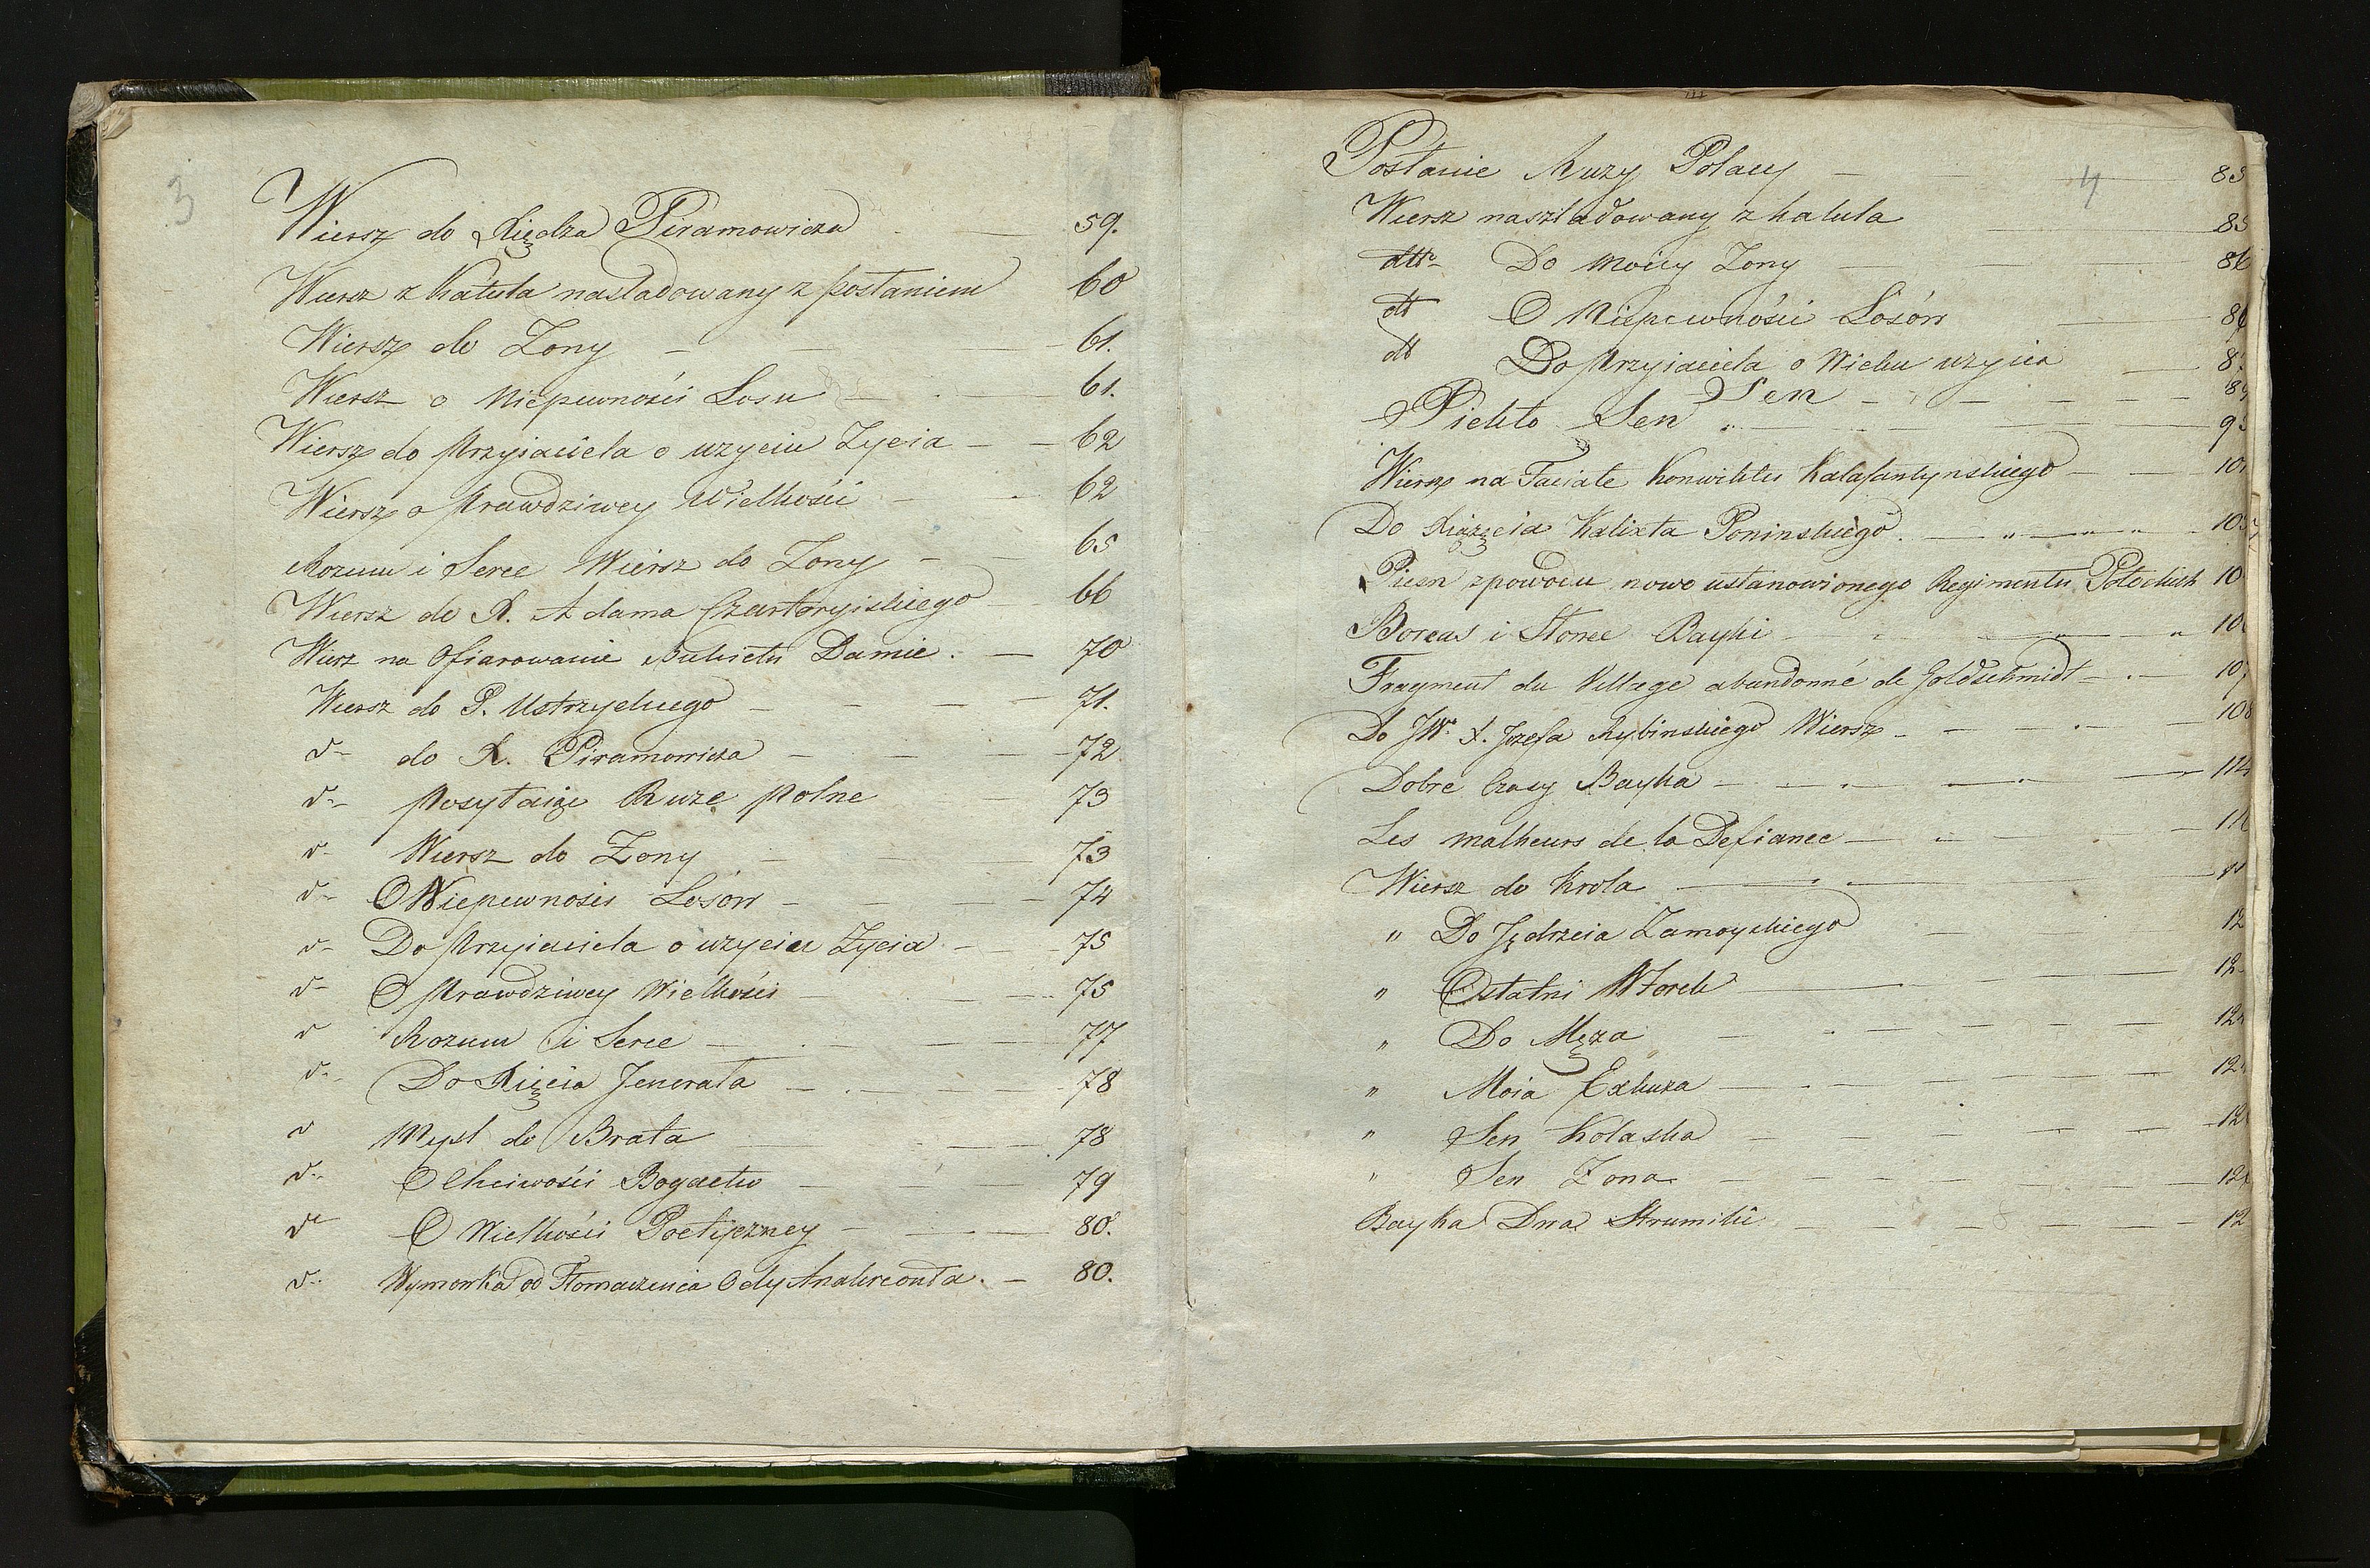 3
Wiersz do Xiędza Piramowicza 59.
Wiersz z Katula nasladowany z posłaniem 60
Wiersz do Zony 61.
Wiersz o Niepewności Losu 61.
Wiersz do Przyiaciela o uzyciu Zycia 62
Wiersz o Prawdziwey Wielkości 62
Rozum i Serce Wiersz do Zony 65
Wiersz do X. Adama Czartoryiskiego 66
Wiersz na Ofiarowanie Bukietu Damie. 70
Wiersz do P. Ustrzyckiego 71.
d- do X. Piramowicza 72
d- Posyłaiąc Ruze Polne 73
d- Wiersz do Zony 73
d- O Niepewnosci Losów 74
d- Do Przyiaciela o uzyciu Zycia 75
d- O Prawdziwey Wielkości 75
d Rozum i Serce 77
d- Do Xięcia Jenerała 78
d Mysl do Brata 78
d- O Chciwości Bogactw 79
d O Wielkości Poetyczney 80.
d- Wymowka od Tłomaczenia Ody Anakreonta. 80.
4
Posłanie Ruzy Polney 83
Wiersz naszladowany z Katula 85
dtto Do Moiey Zony 86
dt O Niepewności Losów 86
dt Do Przyiaciela o Wieku uzyciu 87
Sen 89
Piekło Sen 93
Wiersz na Faciate Konwiktu Kalasantynskiego 10
Do Xiążęcia Kalixta Poninskiego. 105
Piesn z powodu nowo ustanowionego Regimentu Potockich 10
Boreas i Słonce Bayki 10
Fragment du Village abandonné de Goldschmidt 107
Do JW. X. Jozefa Rybinskiego Wiersz 108
Dobre Czasy Bayka 114
Les malheurs de la Defiance 11
Wiersz do Krola 11
" Do Jędrzeia Zamoyskiego 12
" Ostatni Wtorek 12
" Do Męza 12
" Moia Exkuza 12
" Sen Kolaska 12
" Sen Zona 12
Bayka Dwa Strumiki 12